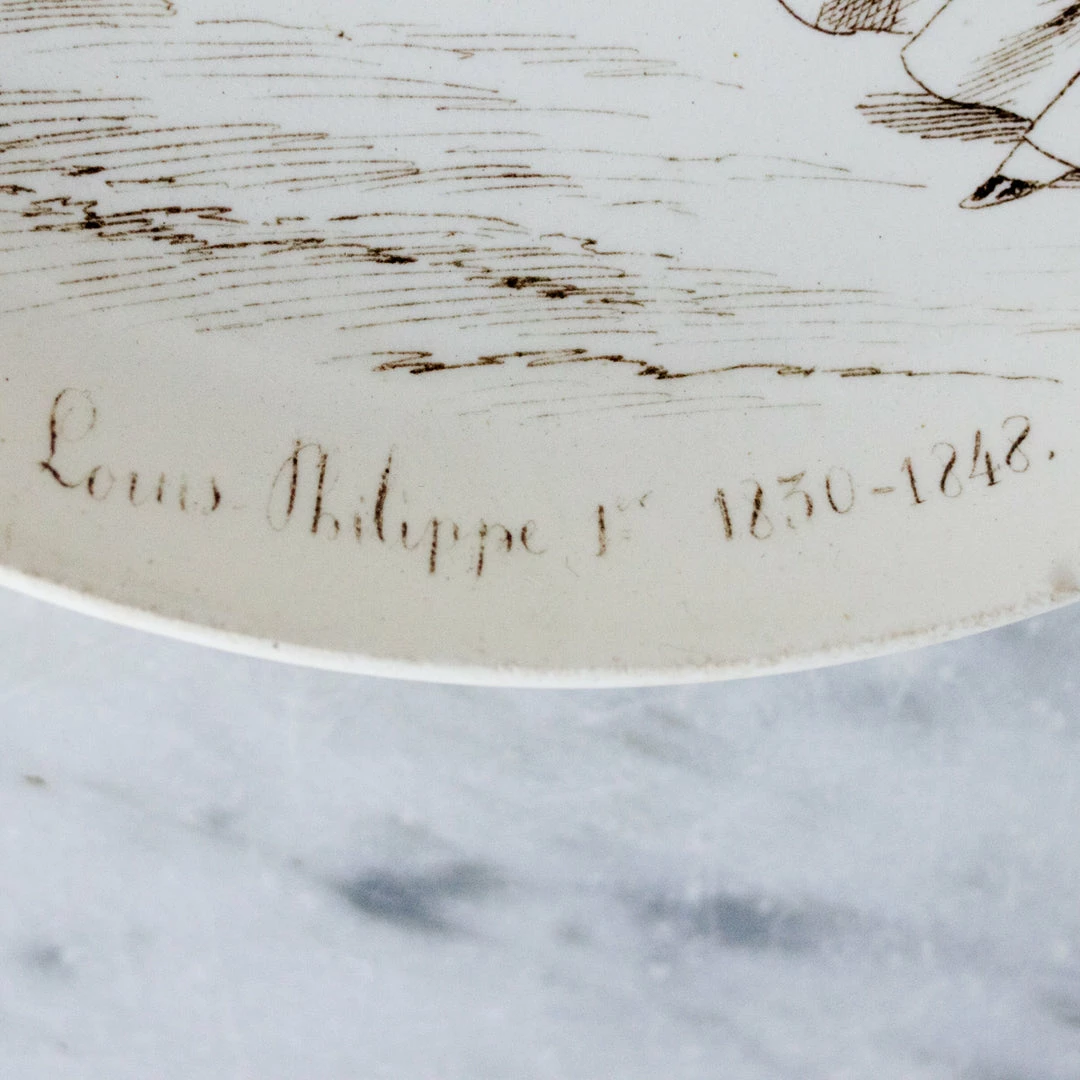 Louis-Philippe 1er 1830-1848.